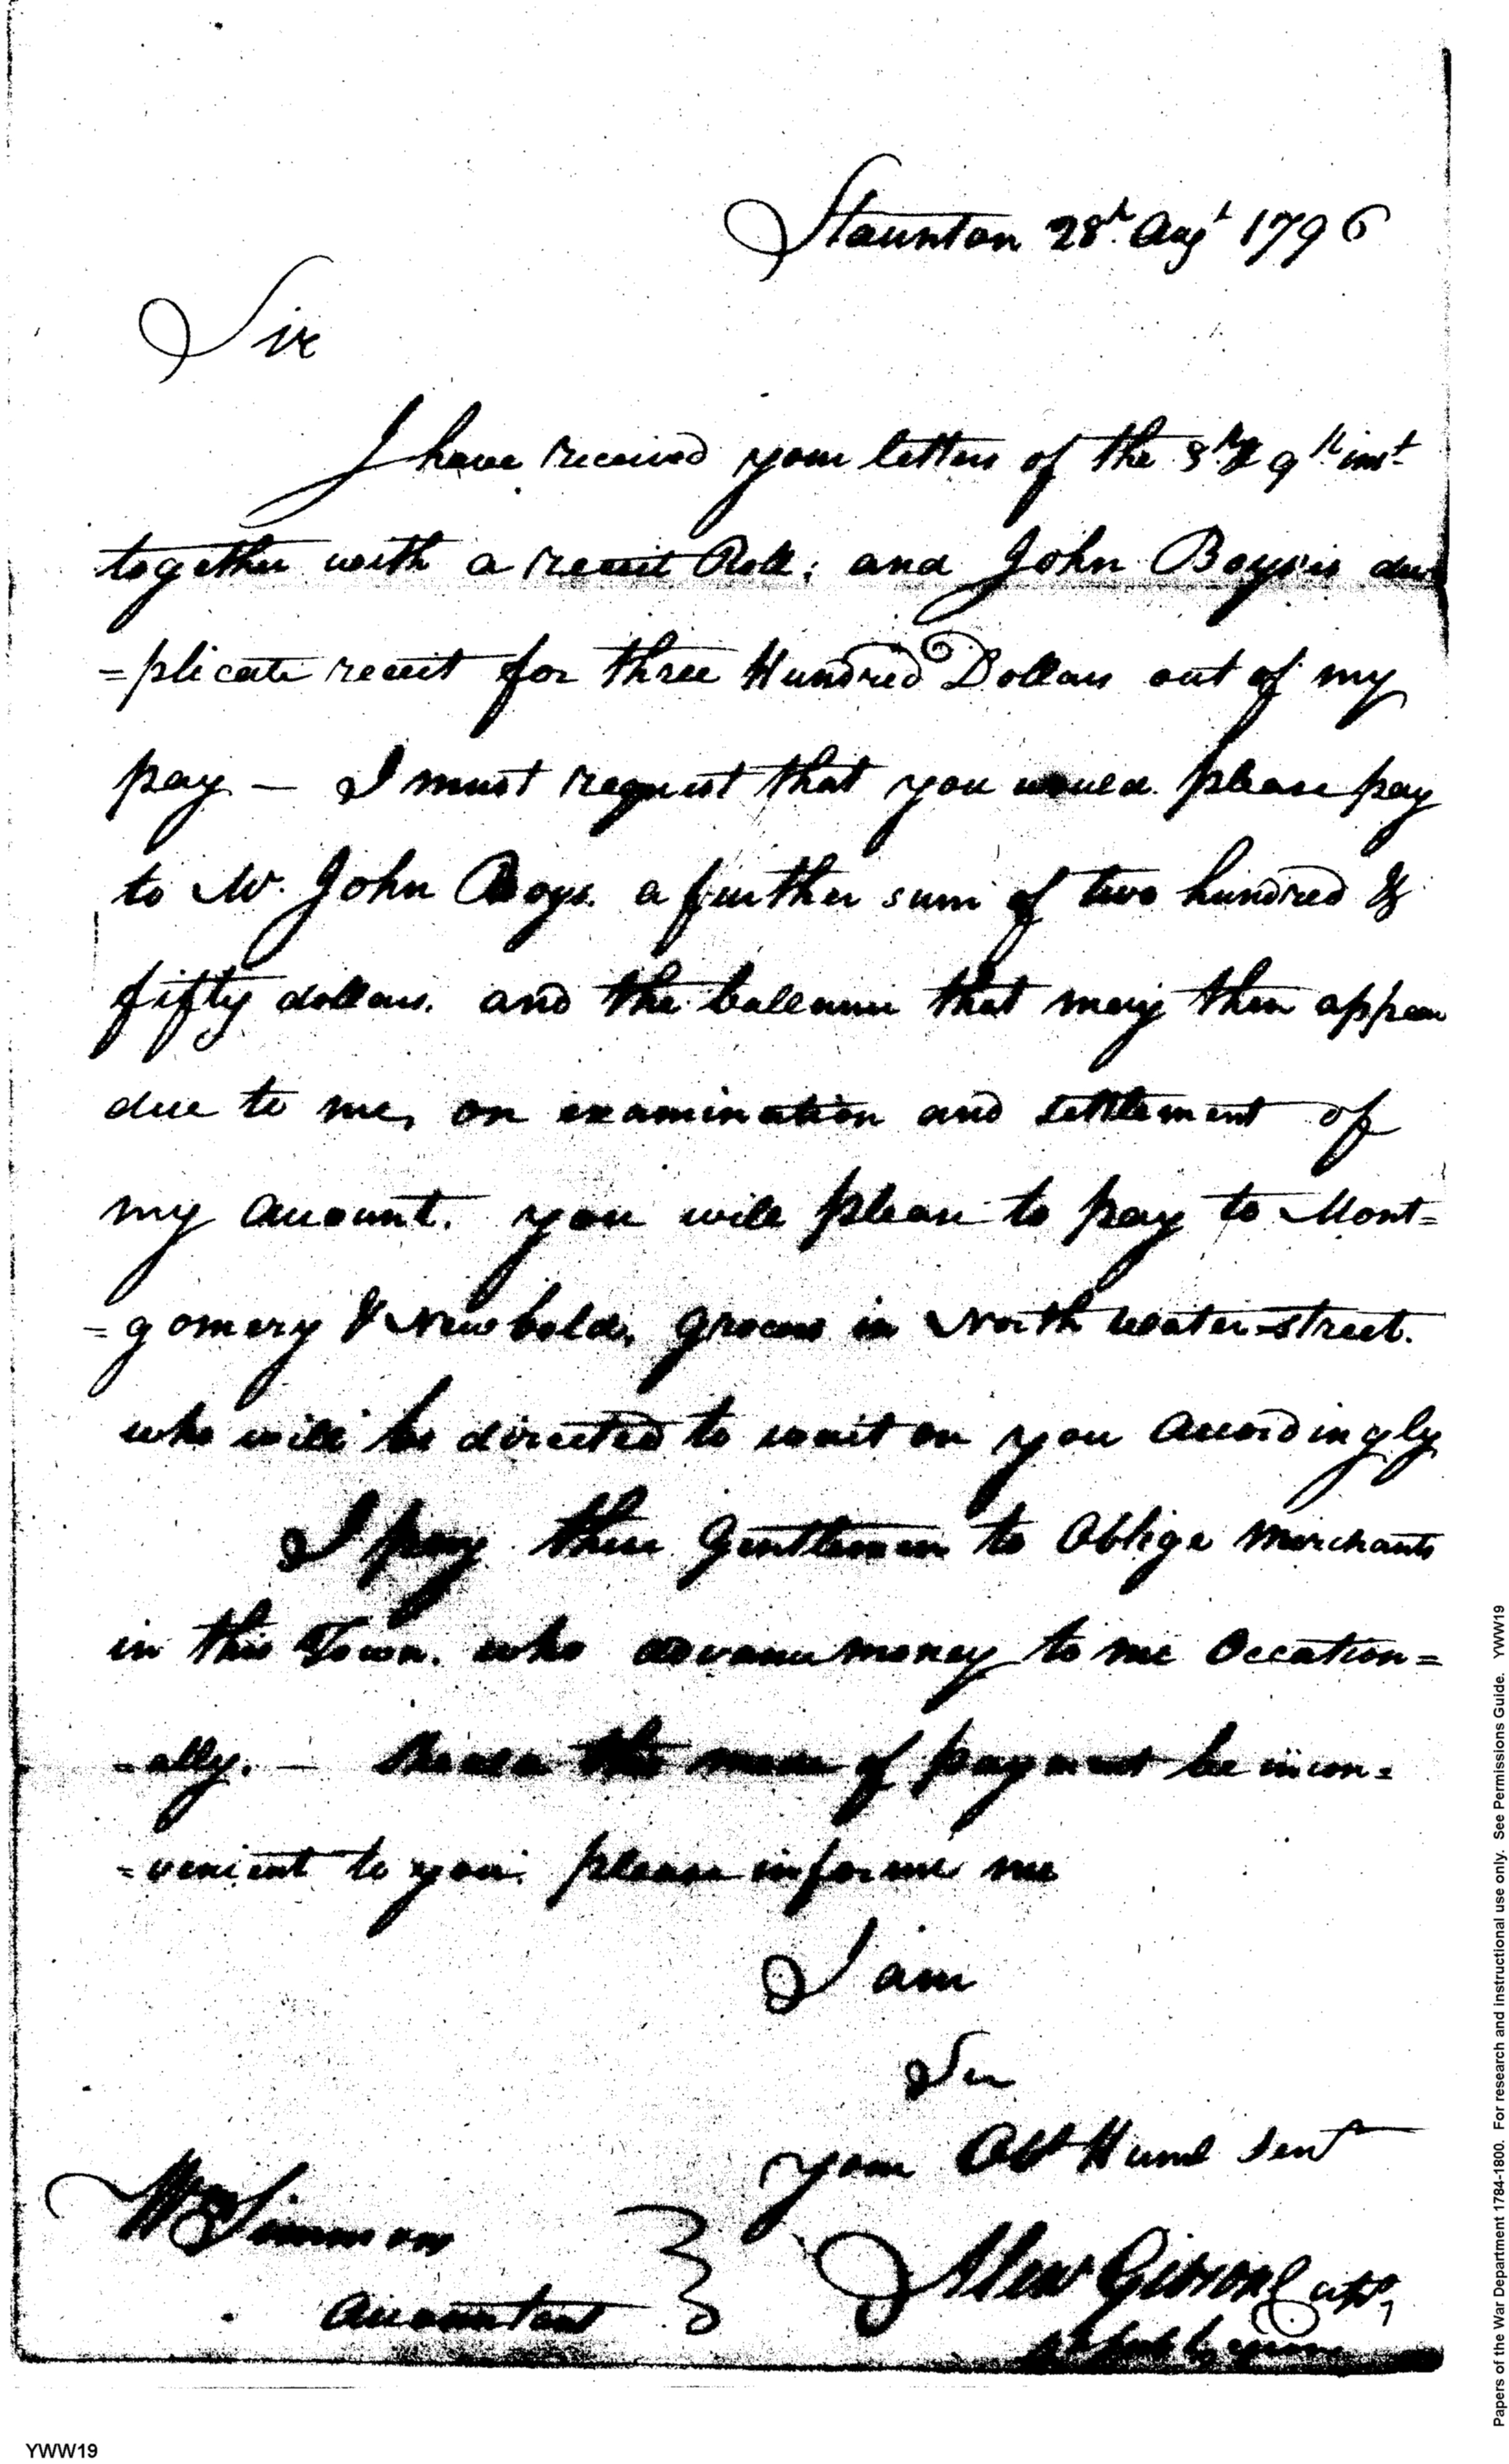 Staunton 28th Augt 1796
Sir
I have received your letters of the 8th & 9th inst
together with a receit Roll; and John Boys's du
=plicate receit for three Hundred Dollars out of my
pay — I must request that you would please pay
to Mr. John Boys. a further sum of two hundred &
fifty dollars. and the ballance that may then appear
due to me, on examination and settlement of
my account. you will please to pay to Mont=
=gomery & Newbold, grocers in North water-street.
who will be directed to wait on you accordingly
I pay these Gentlemen to Oblige Merchants
in this Town. who advance money to me Occation=
=ally. — Should this mode of payment be incon=
=venient to you. please informe me
I am
Sir
your Obt Huml Servt
Wm Simmons
Alexr Gibson Capt,
Accountant
Papers of the War Department 1784-1800. For research and instructional use only. See Permissions Guide. YWW19
YWW19